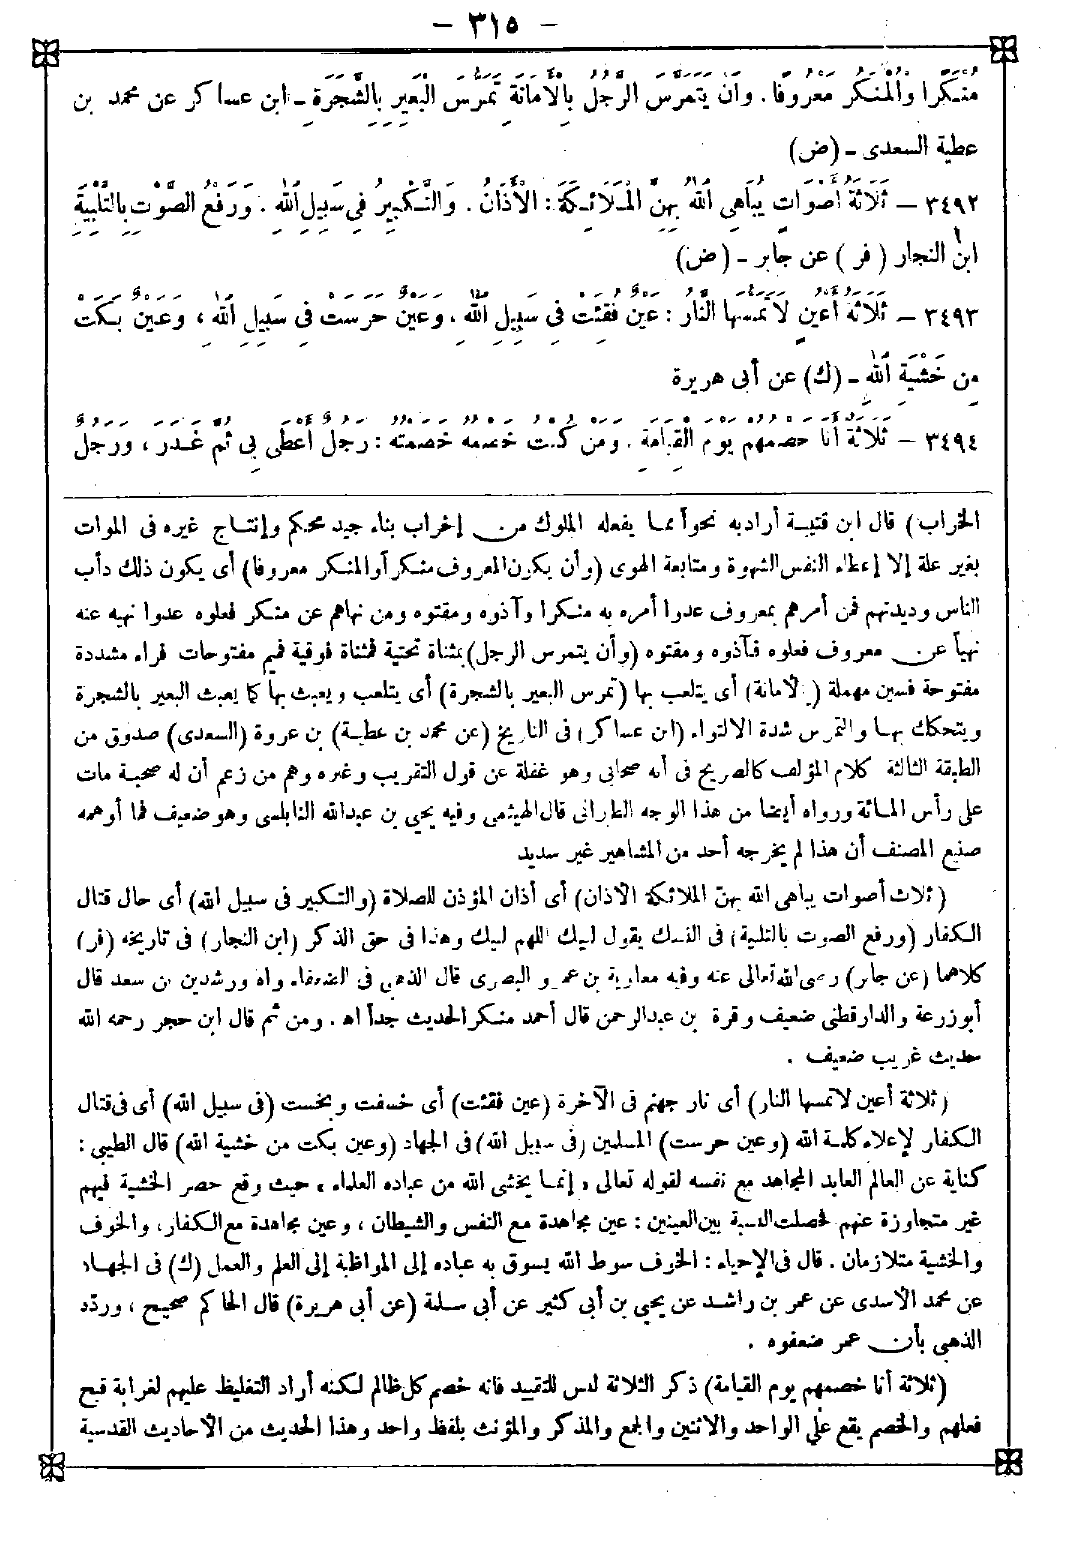 - ٣١٥ -
مُنْكَرًا وَالْمُنْكَرُ مَعْرُوفًا . وَأَنْ يَتَمَرَّسَ الرَّجُلُ بِالْأَمَانَةِ تَمَرُّسَ الْبَعِيرِ بِالشَّجَرَةِ - ابن عساكر عن محمد بن
عطية السعدى - (ض)
٣٤٩٢ - ثَلَاثَةُ أَصْوَاتٍ يُبَاهِى اللهُ بِهِنَّ الْمَلَائِكَةَ : الْأَذَانُ . وَالتَّكْبِيرُ فِى سَبِيلِ اللهِ . وَرَفْعُ الصَّوْتِ بِالتَّلْبِيَةِ
ابن النجار ( فر ) عن جابر - (ض)
٣٤٩٣ - ثَلَاثَةُ أَعْيُنٍ لَا تَمَسُّهَا النَّارُ : عَيْنٌ فُقِئَتْ فِى سَبِيلِ اللهِ ، وَعَيْنٌ حَرَسَتْ فِى سَبِيلِ اللهِ ، وَعَيْنٌ بَكَتْ
مِنْ خَشْيَةِ اللهِ - (ك) عن أبى هريرة
٣٤٩٤ - ثَلَاثَةٌ أَنَا خَصْمُهُمْ يَوْمَ الْقِيَامَةِ . وَمَنْ كُنْتُ خَصْمَهُ خَصَمْتُهُ : رَجُلٌ أَعْطَى بِى ثُمَّ غَدَرَ ، وَرَجُلٌ
الخراب) قال ابن قتيبة أراد به نحواً مما يفعله الملوك من إخراب بناء جيد محكم وإنتاج غيره فى الموات
بغير علة إلا إعطاء النفس الشهوة ومتابعة الهوى (وأن يكون المعروف منكرا والمنكر معروفا) أى يكون ذلك دأب
الناس وديدنهم فمن أمرهم بمعروف عدوا أمره به منكرا وآذوه ومقتوه ومن نهاهم عن منكر فعلوه عدوا نهيه عنه
نهياً عن معروف فعلوه فآذوه ومقتوه (وأن يتمرس الرجل) بمثناة تحتية فمثناة فوقية فميم مفتوحات فراء مشددة
مفتوحة فسين مهملة (بالأمانة) أى يتلعب بها (تمرس البعير بالشجرة) أى يتلعب ويعبث بها كما يعبث البعير بالشجرة
ويتحكك بها والتمرس شدة الالتواء (ابن عساكر) فى التاريخ (عن محمد بن عطية) بن عروة (السعدى) صدوق من
الطبقة الثالثة كلام المؤلف كالصريح فى أنه صحابى وهو غفلة عن قول التقريب وغيره وهم من زعم أن له صحبة مات
على رأس المائة ورواه أيضا من هذا الوجه الطبرانى قال الهيثمى وفيه يحي بن عبدالله النابلسى وهو ضعيف فما أوهمه
صنيع المصنف أن هذا لم يخرجه أحد من المشاهير غير سديد
(ثلاث أصوات يباهى الله بهن الملائكة الأذان) أى أذان المؤذن للصلاة (والتكبير فى سبيل الله) أى حال قتال
الكفار (ورفع الصوت بالتلبية) فى النسك يقول لبيك اللهم لبيك وهذا فى حق الذكر (ابن النجار) فى تاريخه (فر)
كلاهما (عن جابر) رضى الله تعالى عنه وفيه معاوية بن عمرو البصرى قال الذهبى فى الضعفاء واه ورشدين بن سعد قال
أبوزرعة والدارقطنى ضعيف وقرة بن عبدالرحمن قال أحمد منكر الحديث جداً اه . ومن ثم قال ابن حجر رحمه الله
حديث غريب ضعيف .
(ثلاثة أعين لاتمسها النار) أى نار جهنم فى الآخرة (عين فقئت) أى خسفت وبخست (فى سبيل الله) أى فى قتال
الكفار لإعلاء كلمة الله (وعين حرست) المسلمين (فى سبيل الله) فى الجهاد (وعين بكت من خشية الله) قال الطيبى :
كناية عن العالم العابد المجاهد مع نفسه لقوله تعالى « إنما يخشى الله من عباده العلماء » حيث وقع حصر الخشية فيهم
غير متجاوزة عنهم فحصلت النسبة بين العينين : عين مجاهدة مع النفس والشيطان ، وعين مجاهدة مع الكفار، والخوف
والخشية متلازمان . قال فى الإحياء : الخوف سوط الله يسوق به عباده إلى المواظبة إلى العلم والعمل (ك) فى الجهاد
عن محمد الأسدى عن عمر بن راشد عن يحيى بن أبى كثير عن أبى سلمة (عن أبى هريرة) قال الحاكم صحيح ، وردّد
الذهبى بأن عمر ضعفوه .
(ثلاثة أنا خصمهم يوم القيامة) ذكر الثلاثة ليس للتقييد فانه خصم كل ظالم لكنه أراد التغليظ عليهم لغرابة قبح
فعلهم والخصم يقع على الواحد والاثنين والجمع والمذكر والمؤنث بلفظ واحد وهذا الحديث من الأحاديث القدسية